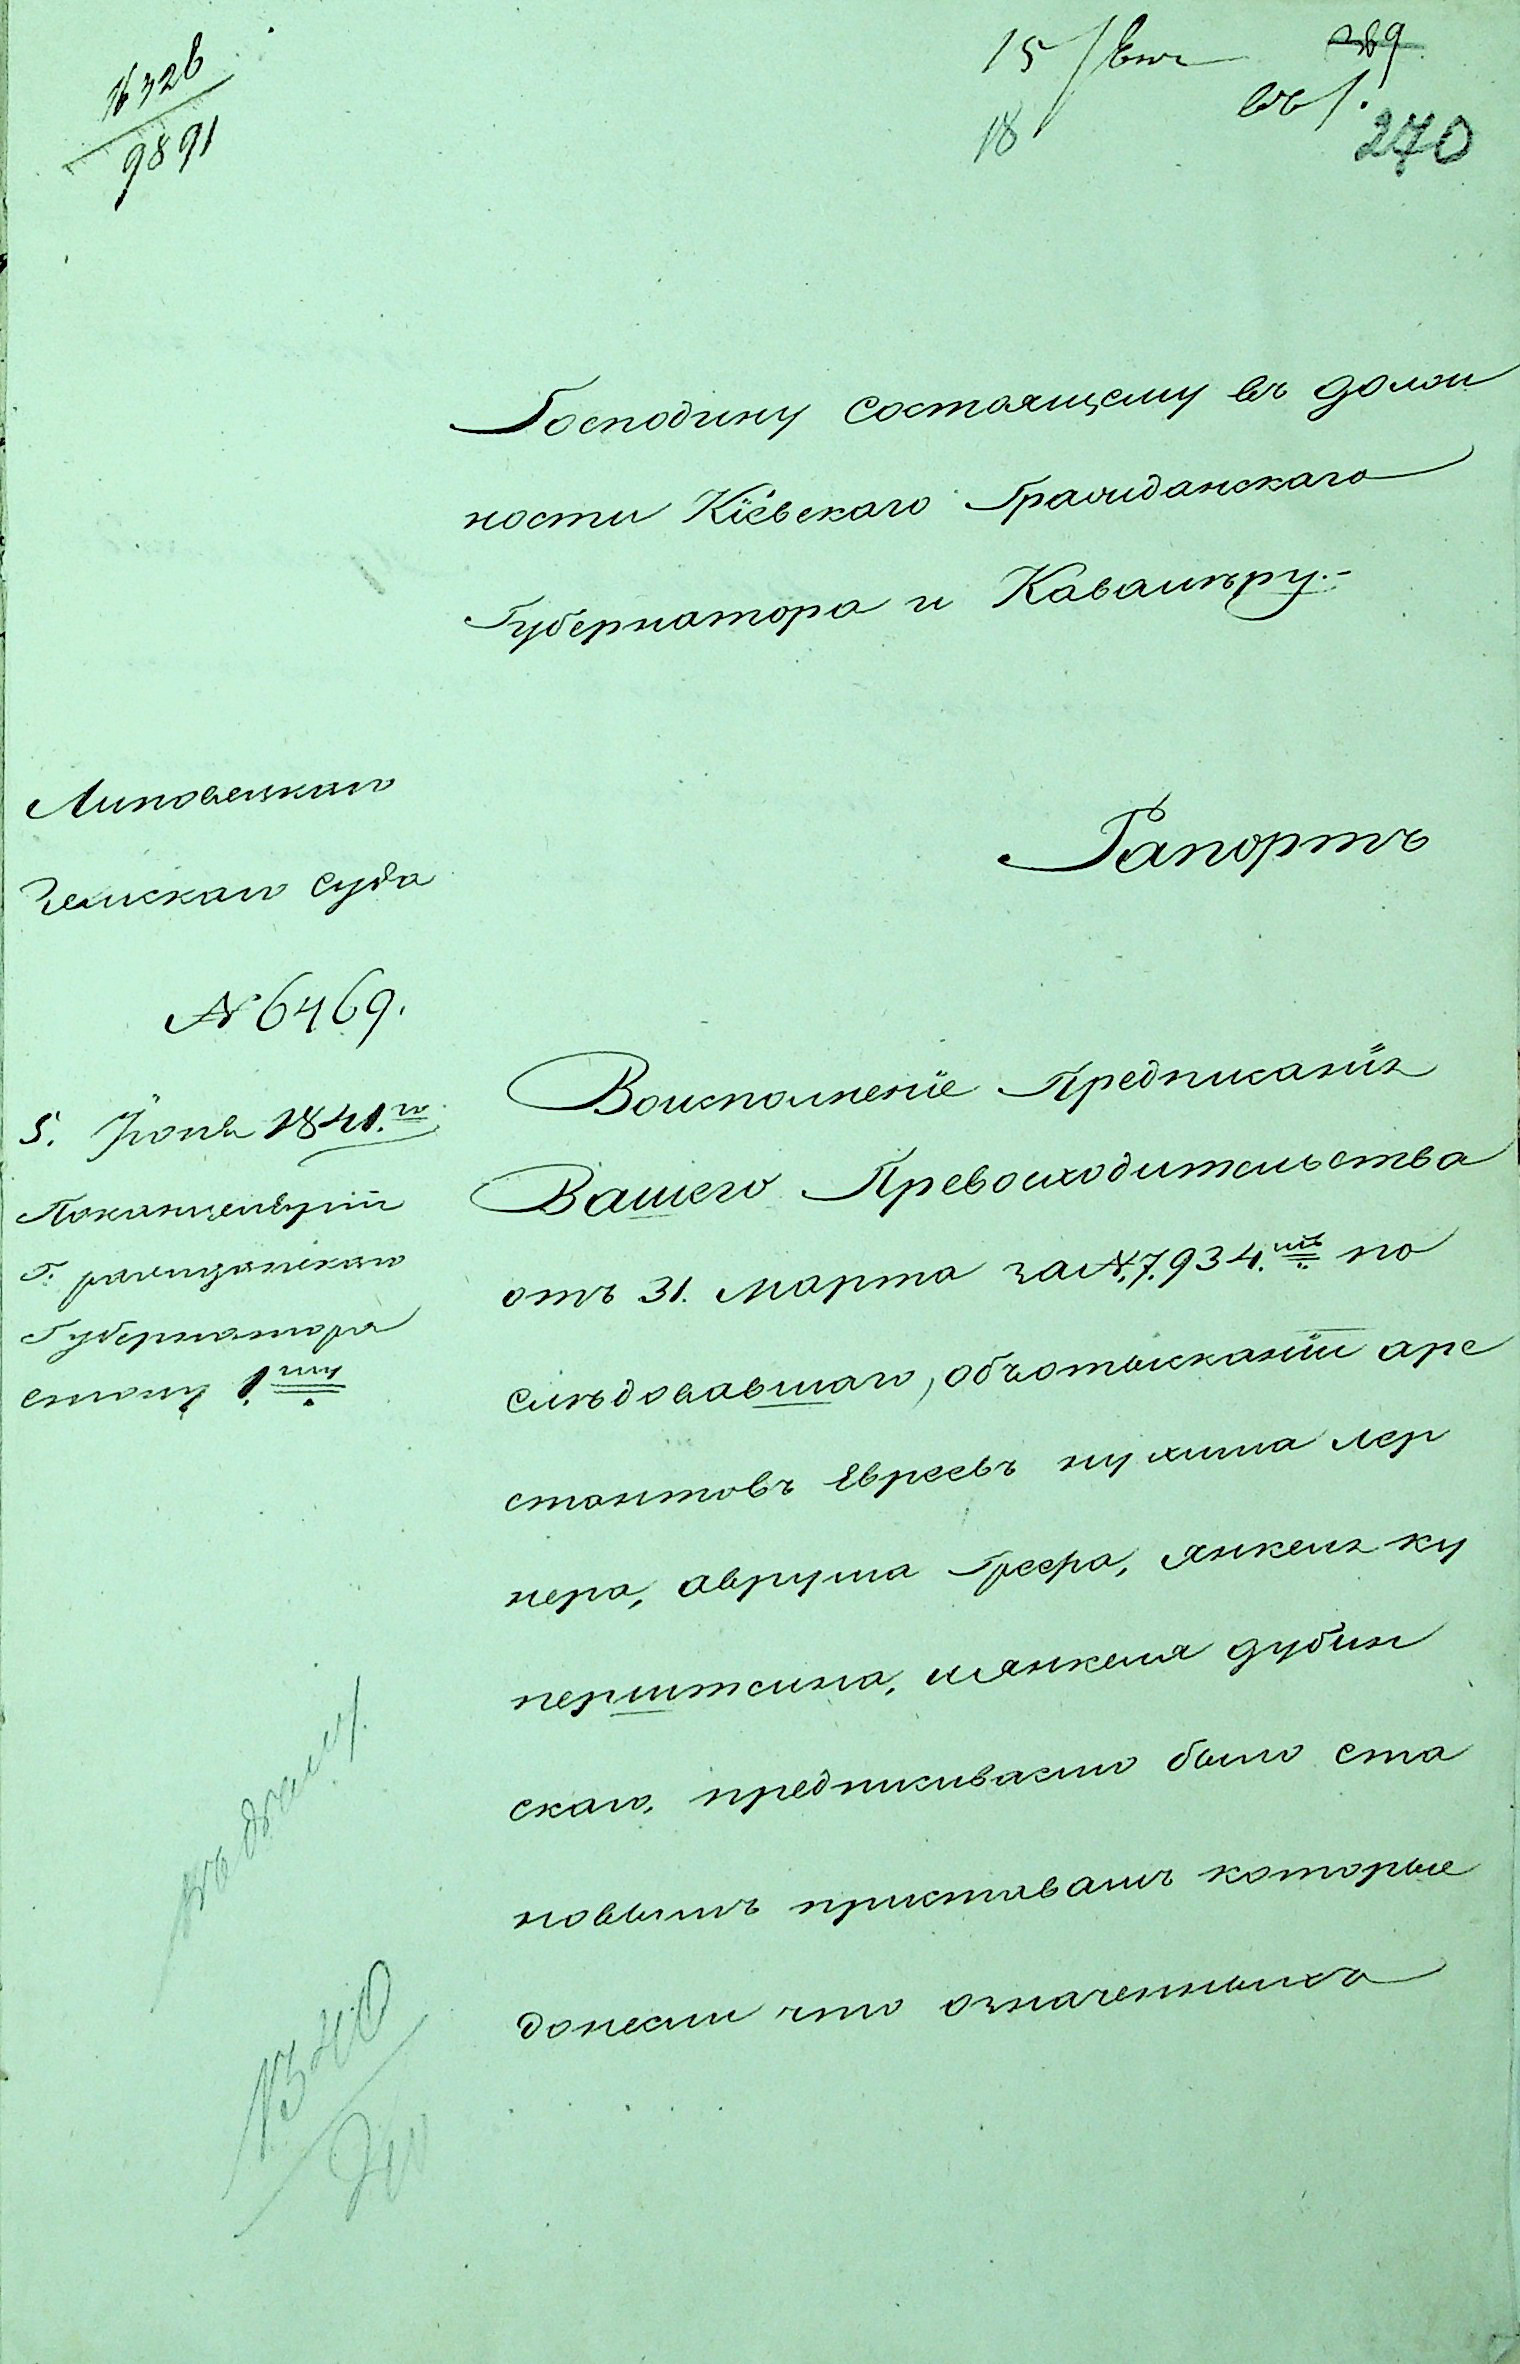 16326
9891
15/
18
269
270
Господину состоящему въ долж
ности Кіевскаго Гражданскаго
Губернатора и Кавалѣру.-
Липовецкаго
Земскаго суда
Рапортъ
№ 6469.
5. Іюня 1841.го
Поканцелярій
Г: ражданскаго
Губернатора
столу 1.му
Воисполненіе Предписанія
Вашего Превосходительства
отъ 31. Марта за №.7.934.мъ по
слѣдовавшаго, объотысканіи аре
стантовъ Евреевъ нухима лер
нера, аврума Грефа, янкеля ку
перштеина, иянкеля дубин
скаго, предписивамо было ста
новымъ приставамъ которые
донесли что означенныхъ
къ дѣлу